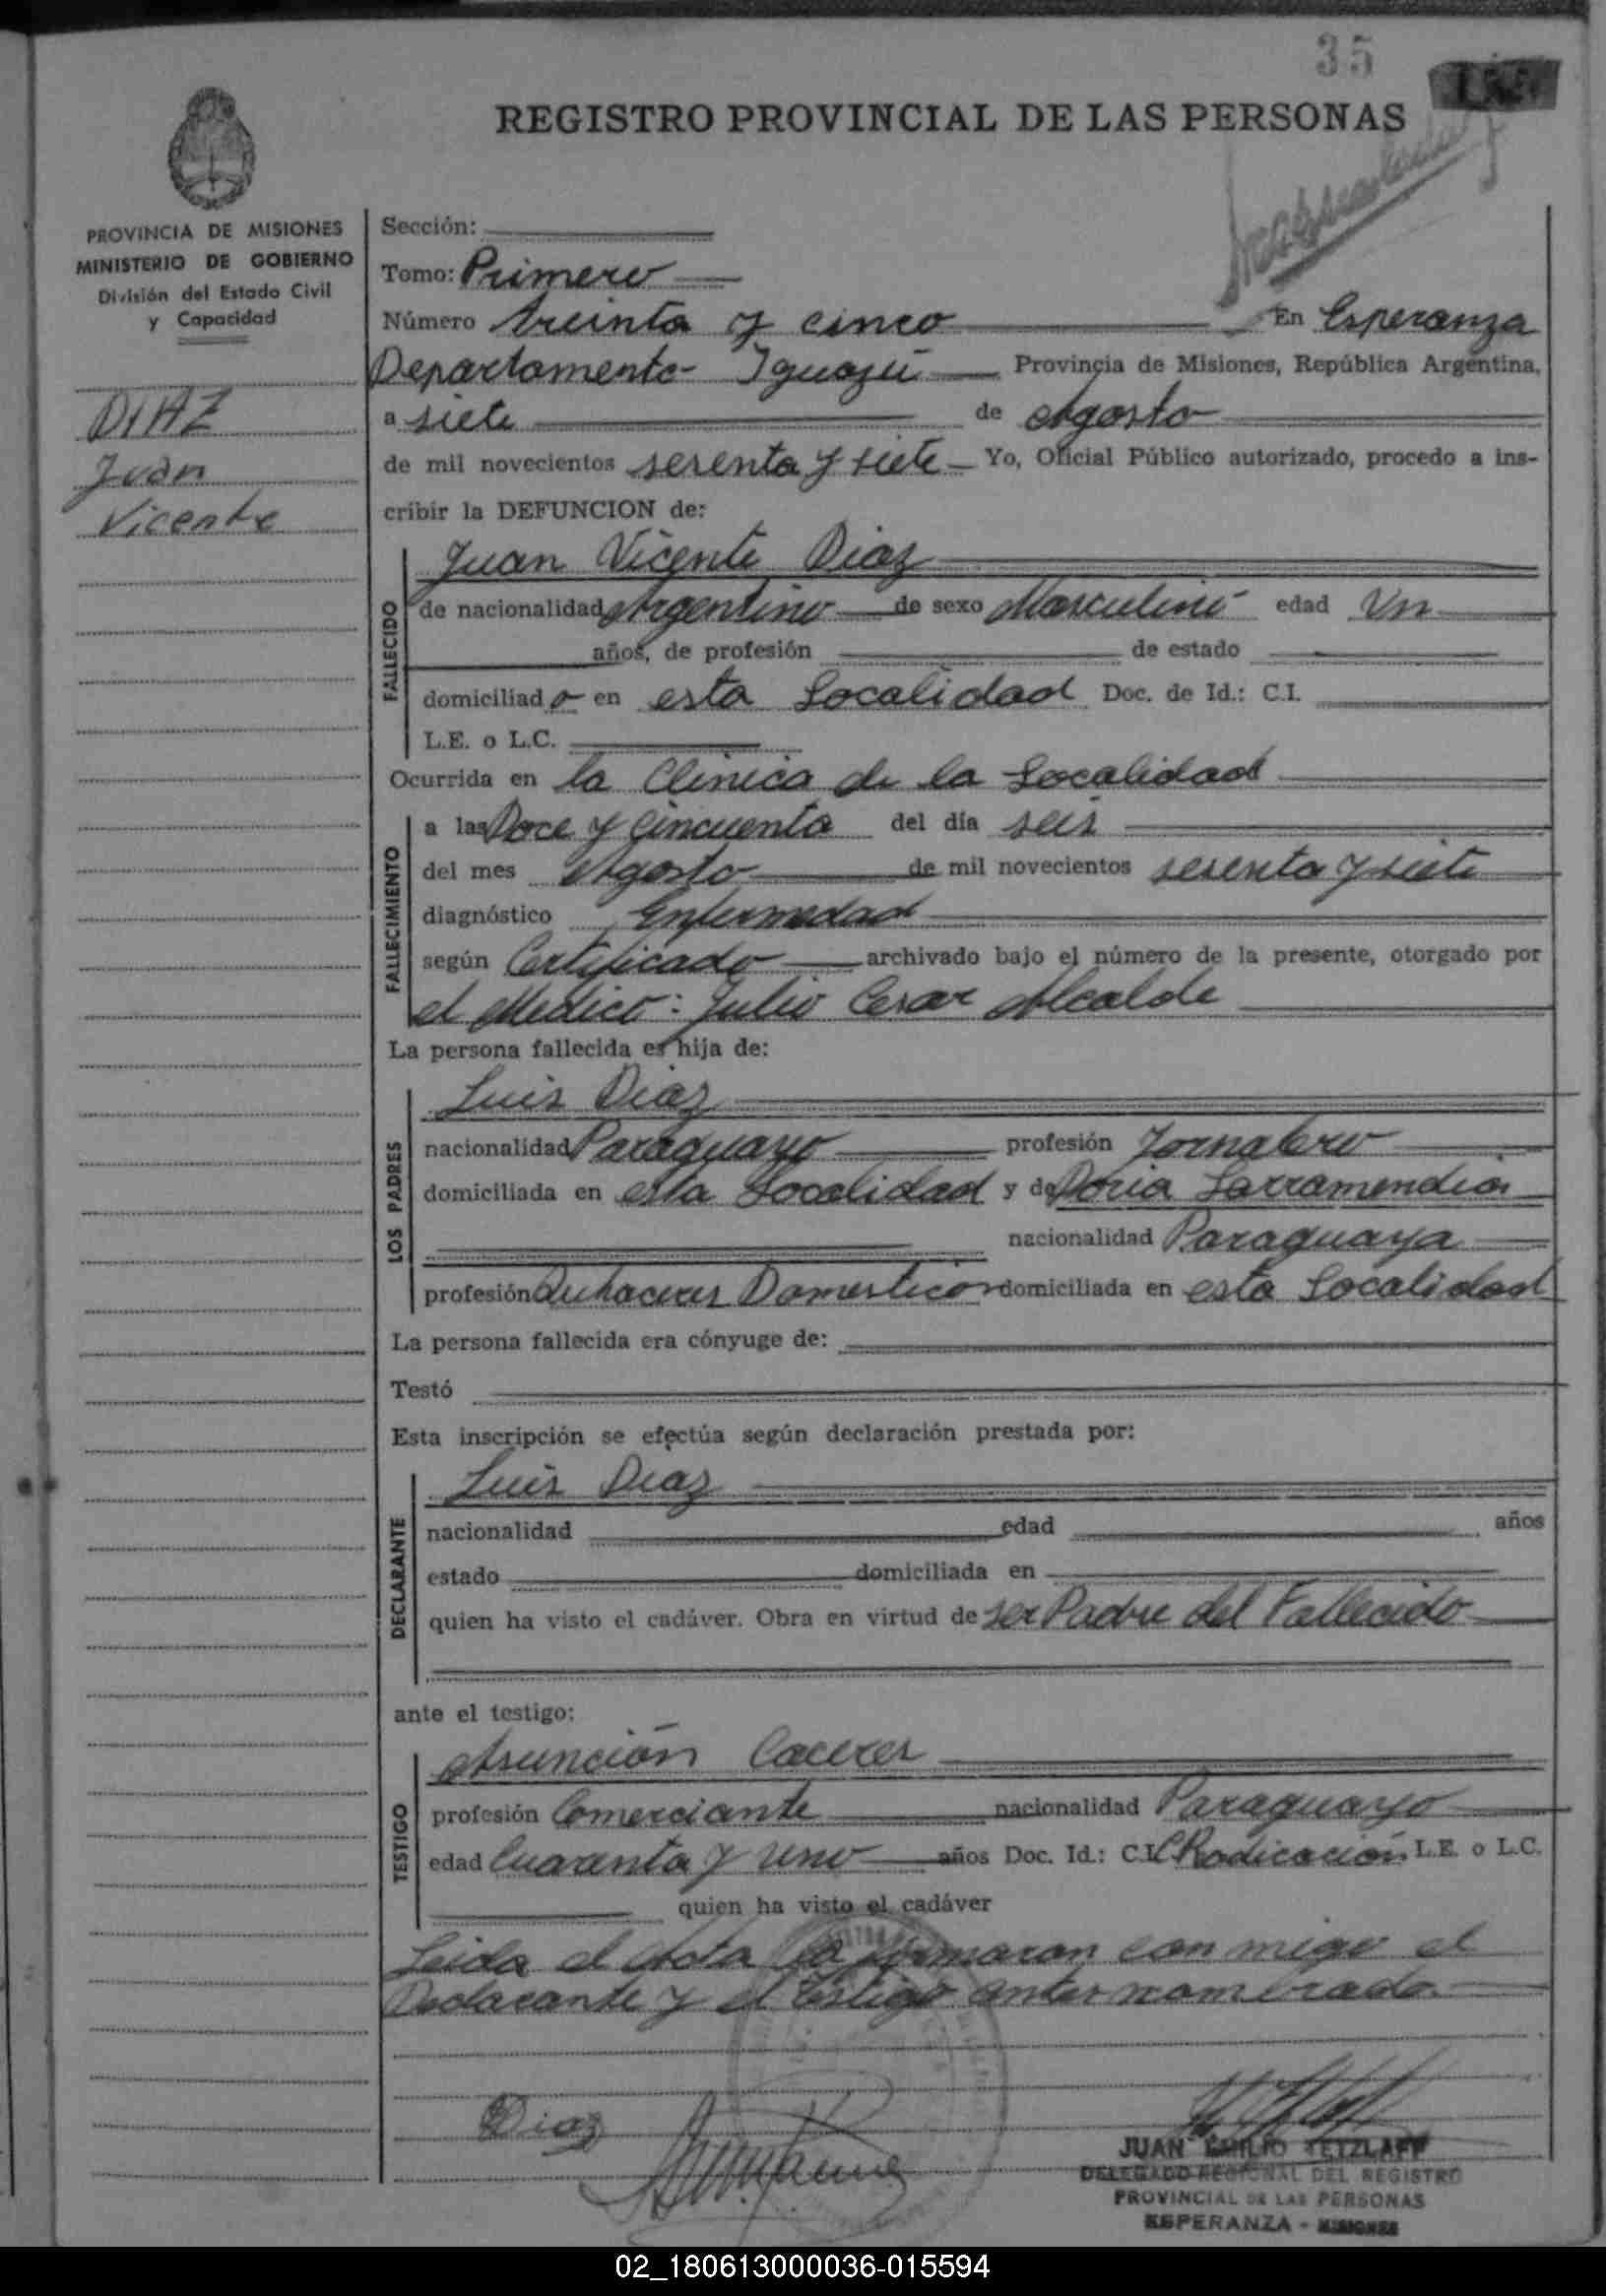 35
REGISTRO PROVINCIAL DE LAS PERSONAS
PROVINCIA DE MISIONES
MINISTERIO DE GOBIERNO
División del Estado Civil
y Capacidad
DIAZ
Juan
Vicente
Sección:
Tomo: Primero
Número treinta y cinco En Esperanza
Departamento Iguazú Provincia de Misiones, República Argentina,
a siete de Agosto
de mil novecientos sesenta y siete Yo, Oficial Público autorizado, procedo a ins-
cribir la DEFUNCION de:
FALLECIDO
Juan Vicente Diaz
de nacionalidad Argentino de sexo Masculino edad Un
años, de profesión de estado
domiciliado en esta Localidad Doc. de Id.: C.I.
L.E. o L.C.
Ocurrida en la Clinica de la Localidad
FALLECIMIENTO
a las Doce y Cincuenta del día seis
del mes Agosto de mil novecientos sesenta y siete
diagnóstico Enfermedad
según Certificado archivado bajo el número de la presente, otorgado por
el Medico: Julio Cesar Alcalde
La persona fallecida es hija de:
LOS PADRES
Luis Diaz
nacionalidad Paraguayo profesión Jornalero
domiciliada en esta Localidad y de Doria Larramendia
nacionalidad Paraguaya
profesión Quhaceres Domesticos domiciliada en esta Localidad
La persona fallecida era cónyuge de:
Testó
Esta inscripción se efectúa según declaración prestada por:
DECLARANTE
Luis Diaz
nacionalidad edad años
estado domiciliada en
quien ha visto el cadáver. Obra en virtud de ser Padre del Fallecido
ante el testigo:
TESTIGO
Asunción Caceres
profesión Comerciante nacionalidad Paraguayo
edad Cuarenta y uno años Doc. Id.: C.I. Radicación L.E. o L.C.
quien ha visto el cadáver
Leida el Acta la firmaron con migo el
Declarante y el testigo antes nombrado.
Diaz
JUAN EMILIO TETZLAFF
DELEGADO REGIONAL DEL REGISTRO
PROVINCIAL DE LAS PERSONAS
ESPERANZA - MISIONES
02_180613000036-015594